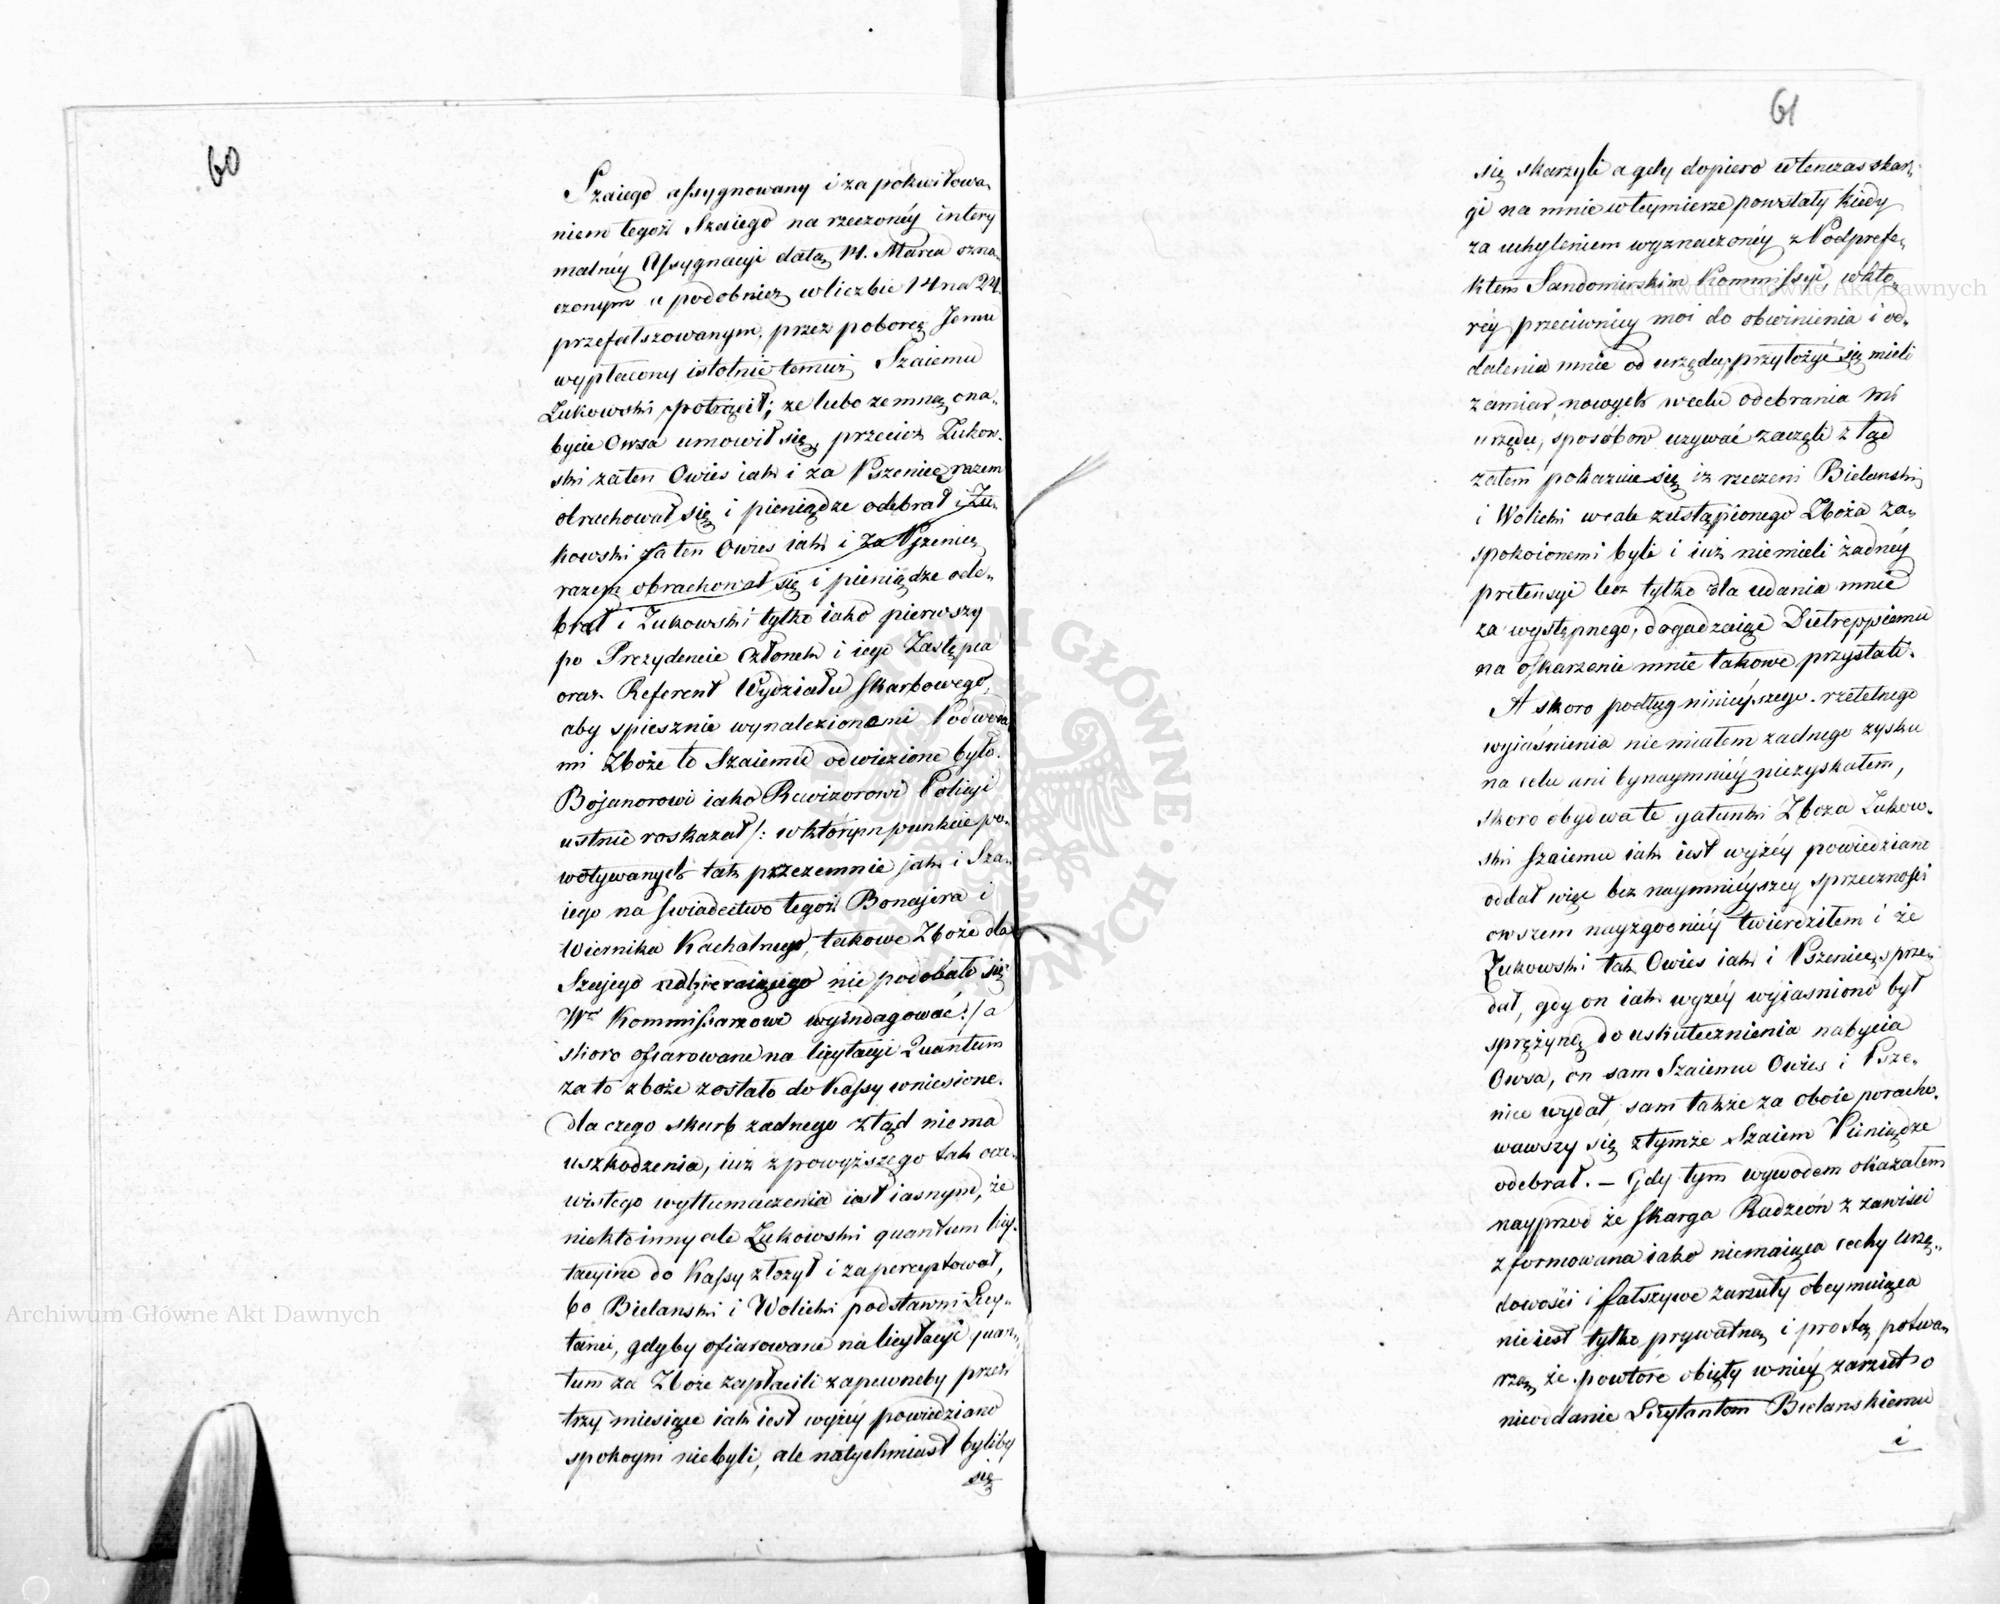 60
Szaiego assygnowany i za pokwitowa„
niem tegoż Szaiego na rzeczonéy intery
malnéy Assygnacyi datą 14. Marca ozna„
czonym a podobnież w liczbie 14 na 24.
przefałszowanym, przez poborcę Jemu
wypłacony istotnie temuż Szaiemu
Zukowski potrącił; że lubo zemną o na„
bycie Owsa umowił się, przecież Zukow„
ski za ten Owies iak i za Pszenicę razem
obrachował się i pieniądze odebrał i Zu„
kowski za ten Owies iak i za Pszenicę
razem obrachował się i pieniądze ode„
brał i Zukowski tylko iako pierwszy
po Prezydencie Członek i iego Zastępca
oraz Referent Wydziału skarbowego,
aby spiesznie wynalezionemi Podwoda
mi Zboże to Szaiemu odwiezione było.
Bojanorowi iako Rewizorowi Policyi
ustnie roskazał /: w którym punkcie po„
woływanych tak przezemnie jak i Sza„
iego na swiadectwo tegoż Bonajera i
Wiernika Kachalnego, takowe Zboże dla
Szajego odbieraiącego nie podobało się
Wu Kommissarzowi wyindagować :/ a
skoro ofiarowane na licytacyi Quantum
za to zboże zostało do Kassy wniesione.
dla czego skarb zadnego ztąd niema
uszkodzenia, iuż z powyższego tak ocze„
wistego wytłumaczenia iest iasnym, że
niekto inny ale Zukowski quantum licy„
tacyine do Kassy złożył i zaperceptował,
bo Bielanski i Wolicki podstawni Licy„
tanci, gdyby ofiarowane na licytacyi quan„
tum za Zboże zapłacili zapewneby przez
trzy miesiące iak iest wyżéy powiedziano
spokoyni niebyli, ale natychmiast byliby
się
61
się skarzyli a gdy dopiero wtenczas skar„
gi na mnie w téymierze powstały kiedy
za uchyleniem wyznaczonéy z Podprefe„
ktem Sandomirskim Kommissyi, w któ„
réy przeciwnicy moi do obwinienia i od„
dalenia mnie od urzędu przyłożyć się mieli
zamiar, nowych w celu odebrania mi
urzędu, sposóbow uzywać zaczęli ztąd
zatem pokazuie się iż rzeczeni Bielanski
i Wolicki wcale zustąpionego Zboża za„
spokoionemi byli i iuż niemieli żadnéy
pretensyi lecz tylko dla udania mnie
za występnego, dogadzaiąc Dutreppiemu
na oskarzenie mnie takowe przystali.
A skoro podług ninieyszego rzetelnego
wyiaśnienia nie miałem zadnego zysku
na celu ani bynaymniéy niezyskałem,
skoro obydwa te gatunki Zboza Zukow„
ski Szaiemu iak iest wyżéy powiedziano
oddał więc bez naymniéyszey sprzeczności
owszem nayzgodniéy twierdziłem i że
Zukowski tak Owies iak i Pszenicę sprze„
dał, gdy on iak wyżéy wyiasniono był
sprężyną do uskutecznienia nabycia
Owsa, on sam Szaiemu Owies i Psze„
nice wydał, sam także za oboie poracho„
wawszy się z tymże Szaiem Pieniądze
odebrał. — Gdy tym wywodem okazałem
nayprzod że skarga Radzcón z zawisci
zformowana iako niemaiąca cechy urzę„
dowości i fałszywe zarzuty obeymuiąca
nieiest tylko prywatną i prostą potwa„
rzą że powtóre obięty w niéy zarzut o
nieoddanie Licytantom Bielanskiemu
i